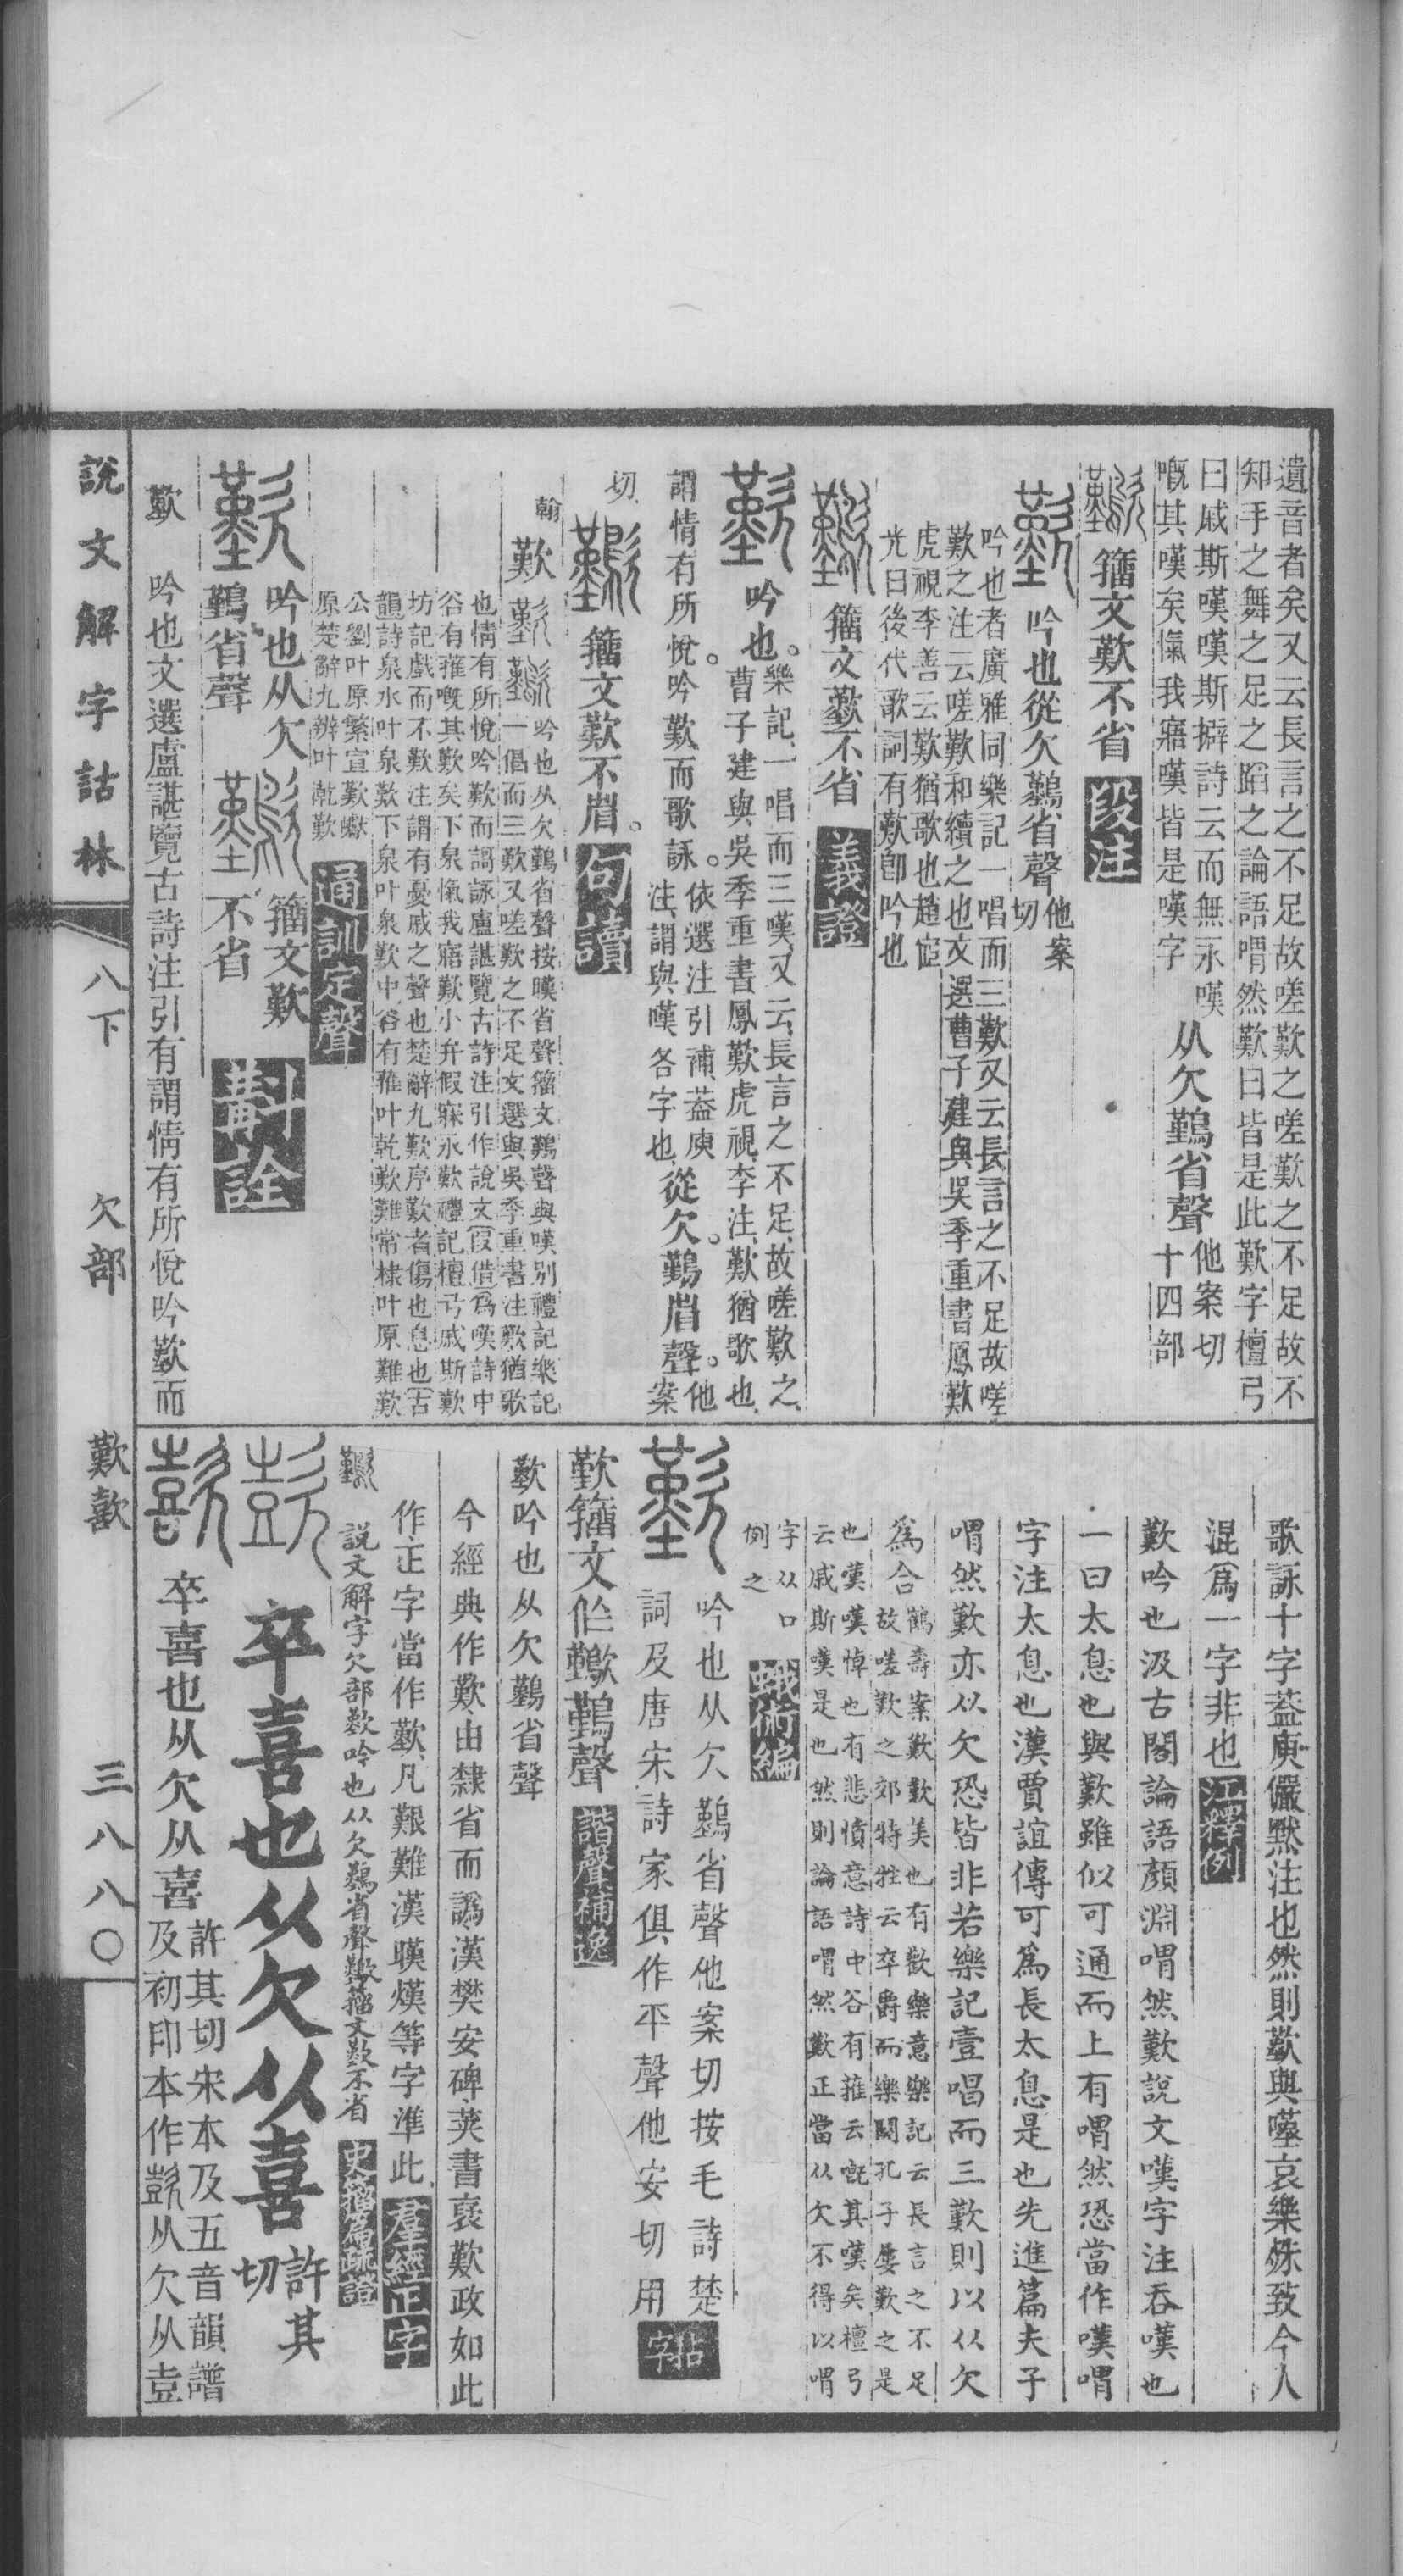 遺音者矣又云長言之不足故嗟歎之嗟歎之不足故不
知手之舞之足之蹈之論語喟然歎曰皆是此歎字檀弓
曰戚斯嘆嘆斯擗詩云而無永嘆
嘅其嘆矣愾我寤嘆皆是嘆字
从欠鷬省聲
他案切
十四部
籒文歎不省
段注
吟也從欠鷬省聲
他案
切
吟也者廣雅同樂記一唱而三歎又云長言之不足故嗟
歎之注云嗟歎和續之也文選曹子建與吳季重書鳳歎
虎視李善云歎猶歌也趙宧
光曰後代歌詞有歎卽吟也
籒文歎不省
義證
吟也。
樂記、一唱而三嘆、又云、長言之不足、故嗟歎之、
曹子建與吳季重書鳳歎虎視、李注、歎猶歌也、
謂情有所悅。吟歎而歌詠。
依選注引補、葢庾
注、謂與嘆各字也、
從欠。鷬省聲。
他
案
切、
籒文歎不省。
句讀
翰
歎
吟也从欠鷬省聲按嘆省聲籒文鷬聲與嘆別禮記樂記
一倡而三歎又嗟歎之不足文選與吳季重書注歎猶歌
也情有所悅吟歎而謌詠盧諶覽古詩注引作說文〔假借〕爲嘆詩中
谷有蓷嘅其歎矣下泉愾我寤歎小弁假寐永歎禮記檀弓戚斯歎
坊記戲而不歎注謂有憂戚之聲也楚辭九歎序歎者傷也息也〔古
韻〕詩泉水叶泉歎下泉叶泉歎中谷有蓷叶乾歎難常棣叶原難歎
公劉叶原繁宣歎巘
原楚辭九辨叶乾歎
通訓定聲
吟也从欠
鷬省聲
籒文歎
不省
斠詮
歎
吟也文選盧諶覽古詩注引有謂情有所悅吟歎而
歌詠十字葢庾儼默注也然則歎與嘆哀樂殊致今人
混爲一字非也
江釋例
歎吟也汲古閣論語顏淵喟然歎說文嘆字注吞嘆也
一曰太息也與歎雖似可通而上有喟然恐當作嘆喟
字注太息也漢賈誼傳可爲長太息是也先進篇夫子
喟然歎亦以欠恐皆非若樂記壹唱而三歎則以从欠
爲合
鶴壽案歎歎美也有歡樂意樂記云長言之不足
故嗟歎之郊特牲云卒爵而樂闋孔子屢歎之是
也嘆嘆悼也有悲憤意詩中谷有蓷云嘅其嘆矣檀弓
云戚斯嘆是也然則論語喟然歎正當从欠不得以喟
字从口
例之
蛾術編
吟也从欠鷬省聲他案切按毛詩楚
詞及唐宋詩家俱作平聲他安切用
拈
字
歎籒文作鷬聲
諧聲補逸
歎吟也从欠鷬省聲
今經典作歎、由隸省而譌、漢樊安碑、莢書裦歎、政如此
作、正字當作歎、凡艱難漢暵熯等字準此、
羣經正字
說文解字欠部歎吟也从欠鷬省聲籒文歎不省
史籒篇疏證
卒喜也从欠从喜
許其
切
卒喜也从欠从喜
許其切宋本及五音韻譜
及初印本作从欠从壴
說文解字詁林
八下
欠部
歎歖
三八八〇